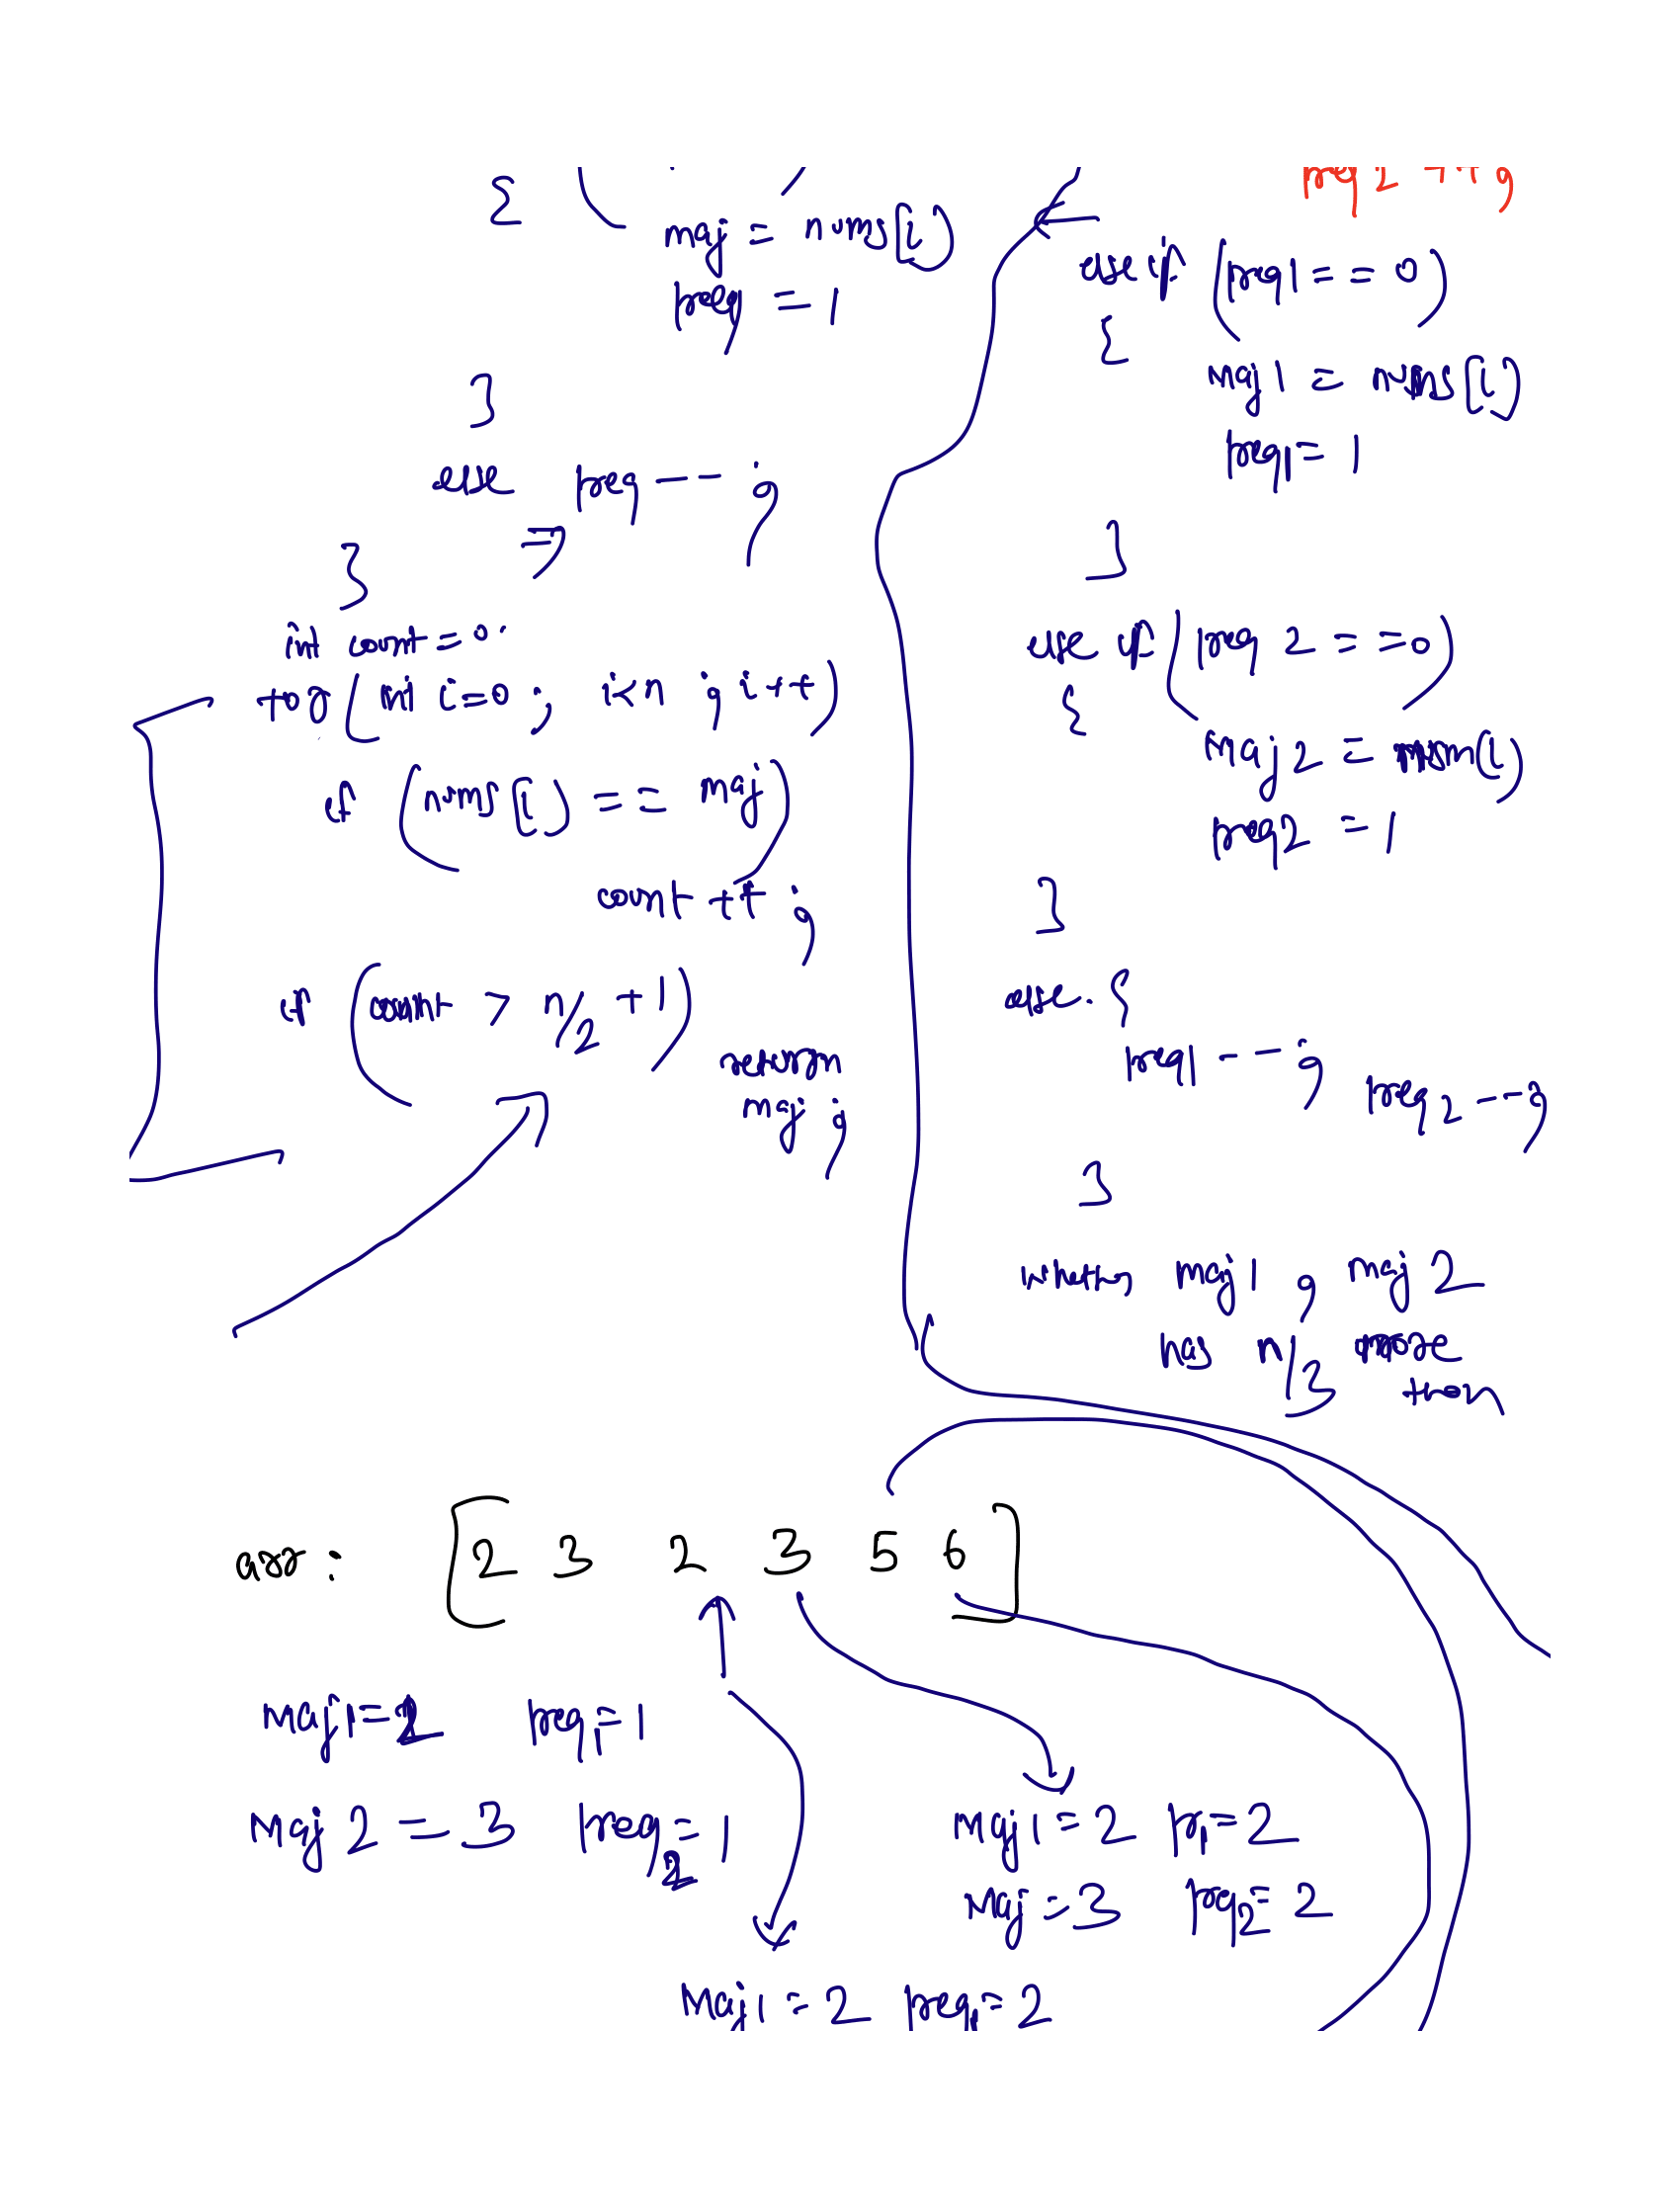 {
maj = nums[i]
freq = 1
}
else freq -- ;
}
int count = 0;
for (int i=0 ; i<n ; i++)
if (nums[i] == maj)
count ++ ;
if (count > n/2 + 1)
return
maj ;
freq 2 ++ ;
else if (freq1 == 0)
{
maj1 = nums[i]
freq1 = 1
}
else if (freq 2 == 0)
{
maj 2 = [i]
freq2 = 1
}
else {
freq1 -- ; freq2 -- ;
}
whether maj1 , maj 2
has n/3 more
than
arr : [2 3 2 3 5 6]
Maj1 = 2 freq1 = 1
Maj 2 = 3 freq2 = 1
Maj1 = 2 fr1 = 2
Maj = 3 freq2 = 2
Maj1 = 2 freq1 = 2